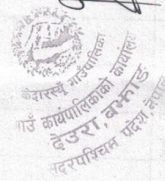 केदारस्यूँ गाउँपालिका
गाउँ कार्यपालिकाको कार्यालय
देउरा, बझाङ
सुदूरपश्चिम प्रदेश नेपाल